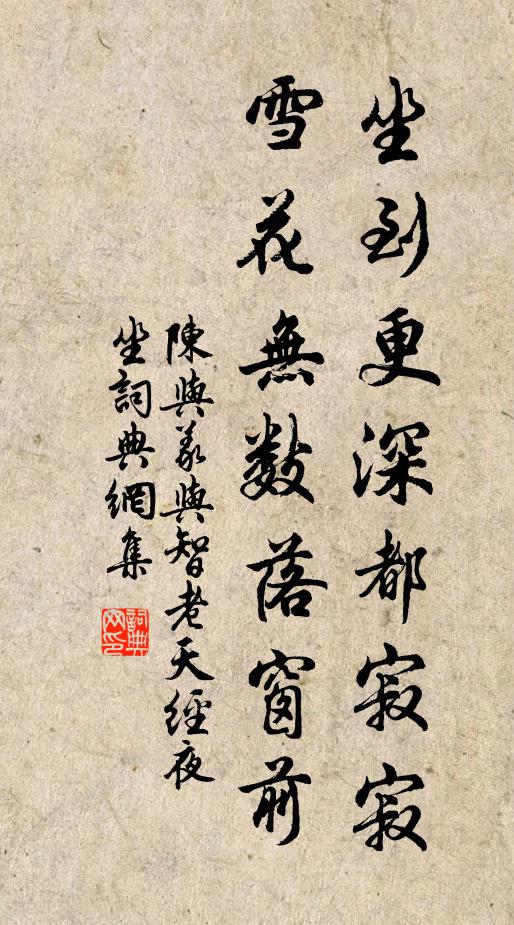 坐到更深都寂寂
雪花無數落窗前
陳與義與智老天經夜
坐詞典網集
詞典
网印